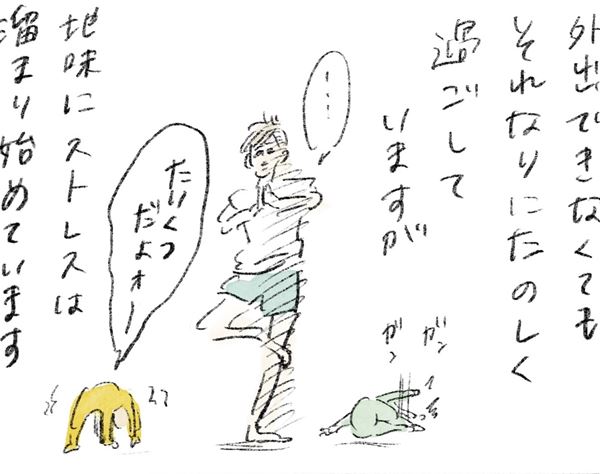 外出できなくても
それなりにたのしく
過ごして
いますが
ガン
ガン
……
たいくつ
だよォー
地味にストレスは
溜まり始めています